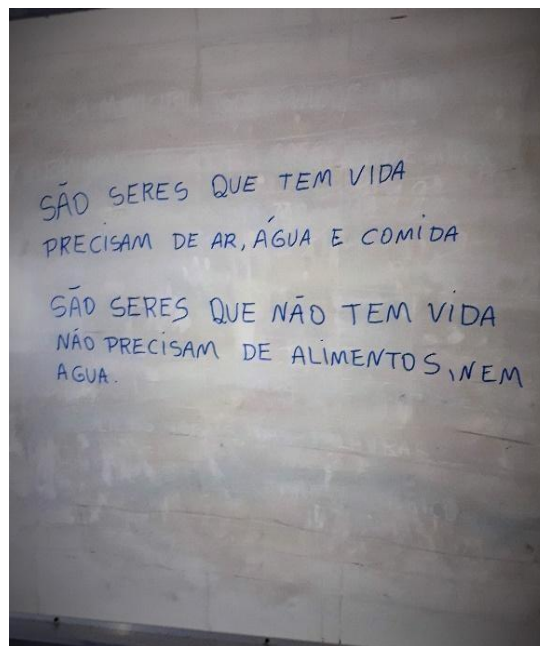 SÃO SERES QUE TEM VIDA
PRECISAM DE AR, ÁGUA E COMIDA
SÃO SERES QUE NÃO TEM VIDA
NÃO PRECISAM DE ALIMENTOS, NEM
AGUA.